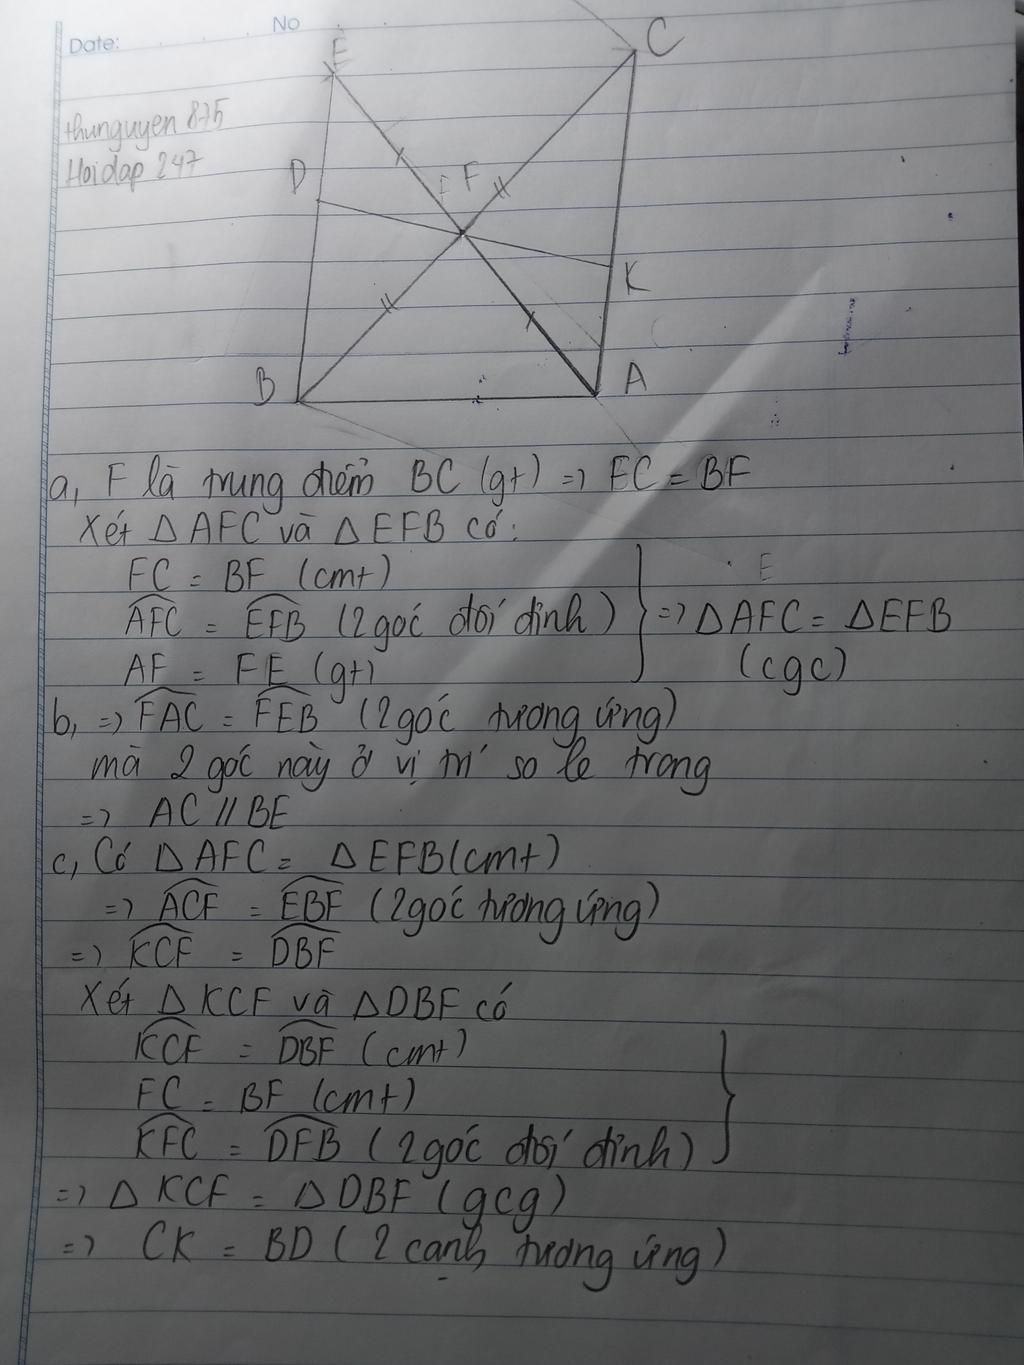 No
Date:
thunguyen 875
Hoidap 247
E
C
D
F
K
B
A
a, F là trung điểm BC (gt) => FC = BF
Xét △ AFC và △ EFB có:
FC = BF (cmt)
AFC = EFB (2 góc đối đỉnh)
AF = FE (gt)
=> △ AFC = △ EFB
(cgc)
E
b, => FAC = FEB (2 góc tương ứng)
mà 2 góc này ở vị trí so le trong
=> AC // BE
c, Có △ AFC = △ EFB (cmt)
=> ACF = EBF (2 góc tương ứng)
=> KCF = DBF
Xét △ KCF và △ DBF có
KCF = DBF (cmt)
FC = BF (cmt)
KFC = DFB (2 góc đối đỉnh)
=> △ KCF = △ DBF (gcg)
=> CK = BD (2 cạnh tương ứng)